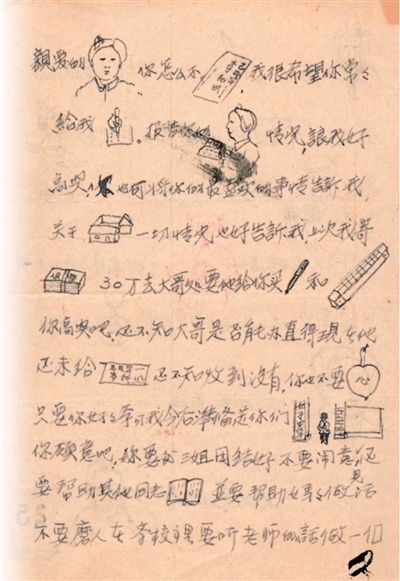 親爱的 你怎么不 ,我很希望你常々
給我 。报告你的 情况,讓我好
高兴,你也可将你的最喜欢的事情告訴我
关于 一切情况也好告訴我,上次我寄
30万去大哥处要他给你买 和
你高兴吧,还不知大哥是否能办
还未给 还不知收到没有,你也不要 心
只要你好好 我今后準備送你们
你願意吧,你要 三姐团结好不要闹意见还
要帮助其他同志 並要帮助 做活
不要磨人在学校里要听老师的話做一个